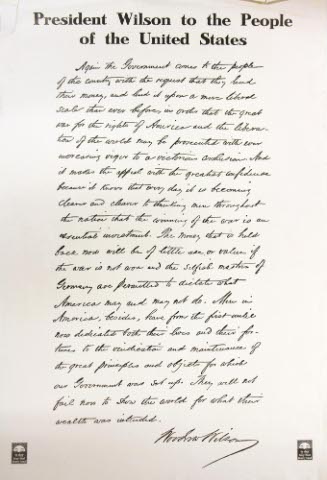 President Wilson to the People
of the United States
Again the Government comes to the people
of this country with the request that they lend
their money, and lend it upon a more liberal
scale than ever before, in order that the great
war for the rights of America and the libera-
tion of the world may be prosecuted with ever
increasing vigor to a victorious conclusion. And
it makes the appeal with the greatest confidence
because it knows that every day it is becoming
clearer and clearer to thinking men throughout
the nation that the winning of the war is an
essential investment. The money that is held
back now will be of little use or value if
the war is not won and the selfish masters of
Germany are permitted to dictate what
America may and may not do. Men in
America, besides, have from the first until
now dedicated both their lives and their for-
tunes to the vindication and maintenance of
the great principles and objects for which
our Government was set up. They will not
fail now to show the world for what their
wealth was intended.
Woodrow Wilson